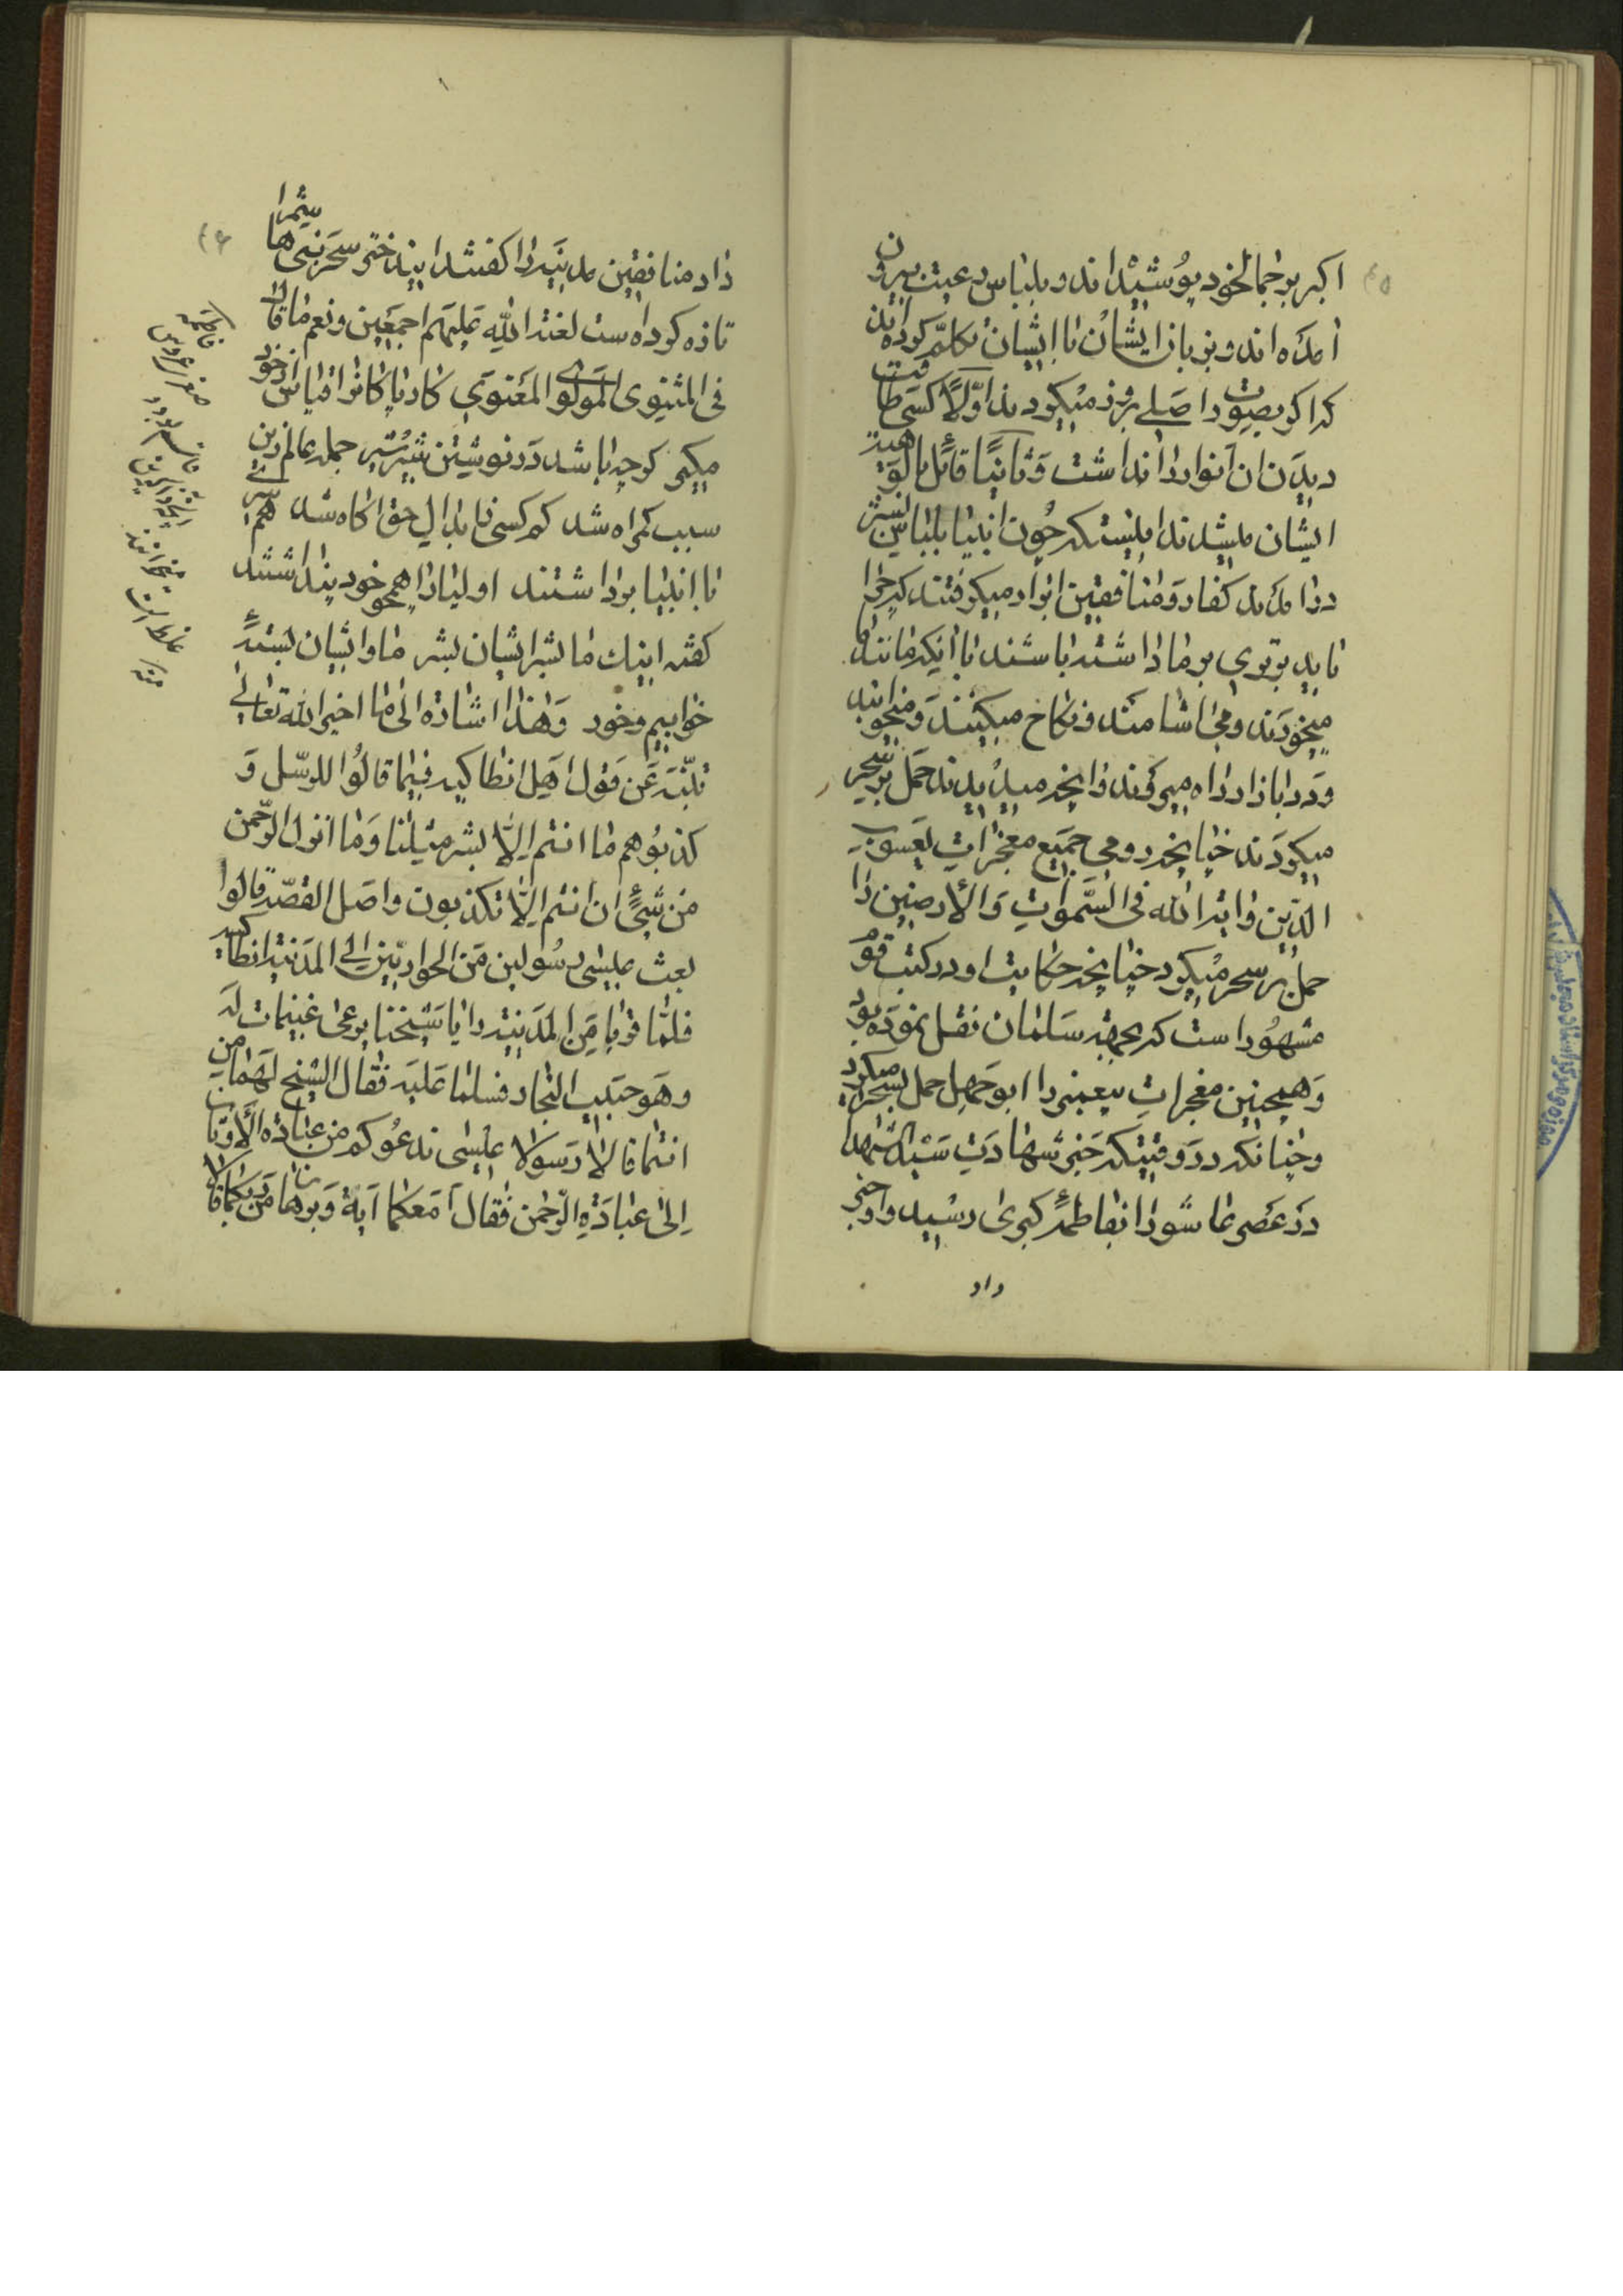 اکبر بر جمال خود پوشیده‌اند و بلباس رعیت بیرون
آمده‌اند و بزبان ایشان با ایشان تکلّم کرده‌اند
که اگر بصورت اصلی بروز میکردند اوّلاً کسی طاقت
دیدن آن انوار را نداشت و ثانیاً قائل بالوهیة
ایشان میشدند اینستکه چون انبیا بلباس بشر
درآمدند کفار و منافقین ایراد میگرفتند که چرا
باید برتری بر ما داشته باشند با اینکه مانند ما
میخورند و می‌آشامند و نکاح میکنند و میخوابند
و در بازار راه میروند و آنچه میدیدند حمل بر سحر
میکردند چنانچه دومی جمیع معجزات یعسوب
الدّین و آیة الله فی السّموات و الأرضین را
حمل بر سحر میکرد چنانچه حکایت او در کتب قوم
مشهور است که بجهة سلمان نقل نموده بود
و همچنین معجزات پیغمبر را ابوجهل حمل بسحر میکرد
و چنانکه در وقتیکه خبر شهادت سید الشهدا
در عصر عاشورا بفاطمهٔ کبری رسید و او خبر
داد
داد منافقین مدینه را گفتند این دختر سحر بنی هاشم را
تازه کرده است لعنة الله علیهم اجمعین و نعم ما قال
فی المثنوی المولوی المعنوی کار پاکانرا قیاس از خود
مگیر گرچه باشد در نوشتن شیر شیر جمله عالم زین
سبب گمراه شد کم کسی ز ابدال حق آگاه شد همسری
با انبیا برداشتند اولیا را همچو خود پنداشتند
گفته اینک ما بشر ایشان بشر ما و ایشان بستهٔ
خوابیم و خور و هذا اشارة الی ما اخبر الله تعالی
نبیّه عن قول اهل انطاکیه فیما قالوا للرسل و
کذبوهم ما انتم الّا بشر مثلنا و ما انزل الرّحمن
من شیء ان انتم الّا تکذبون و اصل القصّة قالوا
بعث عیسی رسولین من الحواریّین الی المدینة انطاکیه
فلمّا قربا من المدینة رایا شیخا یرعی غنیمات له
و هو حبیب النجار فسلما علیه فقال الشیخ لهما من
انتما قالا رسولا عیسی ندعوکم من عبادة الأوثان
الی عبادة الرّحمن فقال أمعکما آیة و برهان من ربکما قالا
فاطمه
صغرا
غلط است